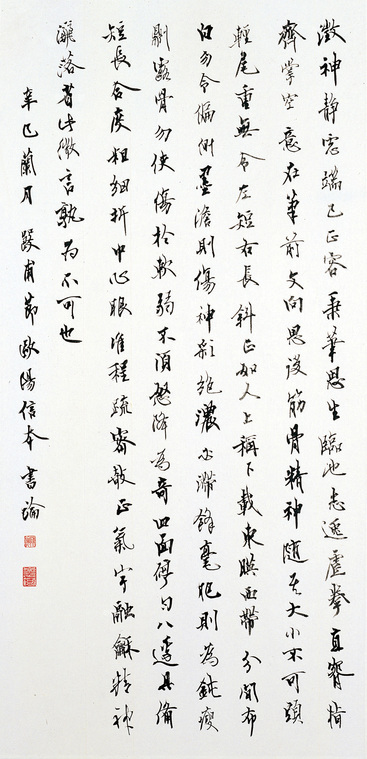 澂神静慮端己正容秉筆思生臨池志逸虛拳直腕指
齊掌空意在筆前文向思後筋骨精神隨其大小不可頭
輕尾重無令左短右長斜正如人上稱下載東映西帶分間布
白勿令偏側墨澹則傷神彩絕濃必滯鋒毫肥則為鈍瘦
則露骨勿使傷於軟弱不須怒降為奇四面停勻八邊具備
短長合度粗細折中心眼准程疏密敧正氣宇融龢精神
灑落省此微言孰為不可也
辛巳蘭月甫節歐陽信本書論